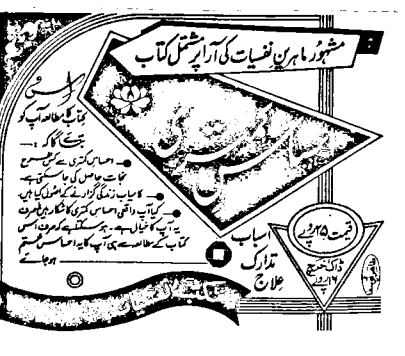 مشہور ماہرین نفسیات کی آرا پر مشتمل کتاب
احساس کمتری
اس
کتاب کا مطالعہ آپ کو
بتائے گا کہ :—
احساس کمتری سے کس طرح
نجات حاصل کی جاسکتی ہے۔
کامیاب زندگی گزارنے کے اصول کیا ہیں۔
کیا آپ واقعی احساس کمتری کا شکار ہیں یا صرف
یہ آپ کا خیال ہے۔ ہوسکتا ہے کہ صرف اسی
کتاب کے مطالعہ سے ہی آپ کا یہ احساس ختم
ہوجائے
اسباب
تدارک
علاج
قیمت ۲۵ روپے
ڈاک خرچ
۱۶ روپے